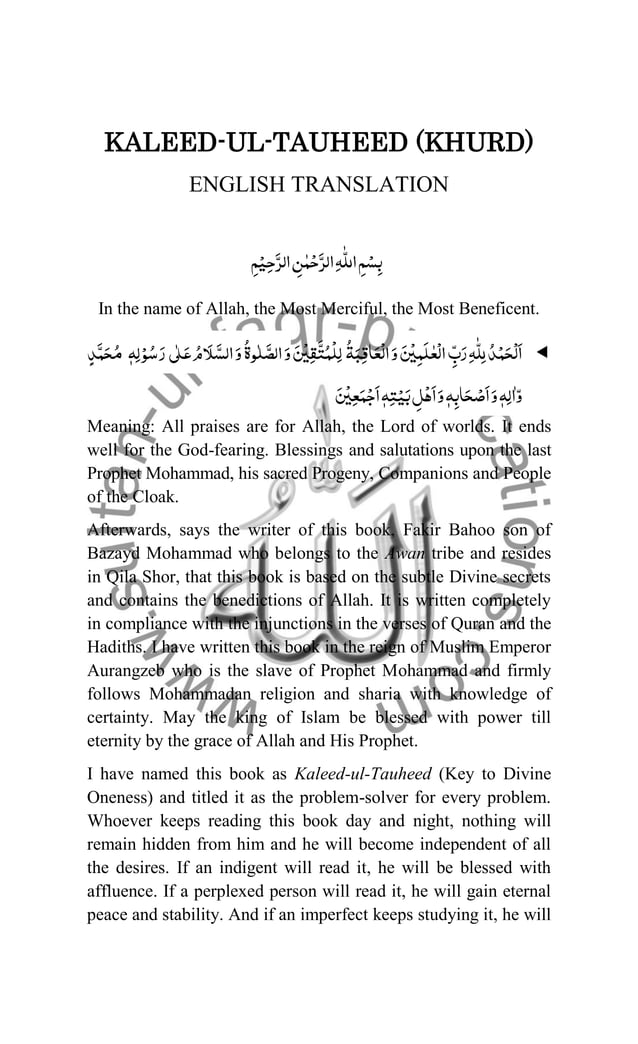 KALEED-UL-TAUHEED (KHURD)
ENGLISH TRANSLATION
بِسْمِ اللّٰهِ الرَّحْمٰنِ الرَّحِيْمِ
In the name of Allah, the Most Merciful, the Most Beneficent.
◄ اَلْحَمْدُ لِلّٰهِ رَبِّ الْعٰلَمِيْنَ وَ الْعَاقِبَةُ لِلْمُتَّقِيْنَ وَ الصَّلٰوةُ وَ السَّلَامُ عَلٰى رَسُوْلِهٖ مُحَمَّدٍ
وَّاٰلِهٖ وَ اَصْحَابِهٖ وَ اَهْلِ بَيْتِهٖ اَجْمَعِيْنَ
Meaning: All praises are for Allah, the Lord of worlds. It ends
well for the God-fearing. Blessings and salutations upon the last
Prophet Mohammad, his sacred Progeny, Companions and People
of the Cloak.
Afterwards, says the writer of this book, Fakir Bahoo son of
Bazayd Mohammad who belongs to the Awan tribe and resides
in Qila Shor, that this book is based on the subtle Divine secrets
and contains the benedictions of Allah. It is written completely
in compliance with the injunctions in the verses of Quran and the
Hadiths. I have written this book in the reign of Muslim Emperor
Aurangzeb who is the slave of Prophet Mohammad and firmly
follows Mohammadan religion and sharia with knowledge of
certainty. May the king of Islam be blessed with power till
eternity by the grace of Allah and His Prophet.
I have named this book as Kaleed-ul-Tauheed (Key to Divine
Oneness) and titled it as the problem-solver for every problem.
Whoever keeps reading this book day and night, nothing will
remain hidden from him and he will become independent of all
the desires. If an indigent will read it, he will be blessed with
affluence. If a perplexed person will read it, he will gain eternal
peace and stability. And if an imperfect keeps studying it, he will
الله